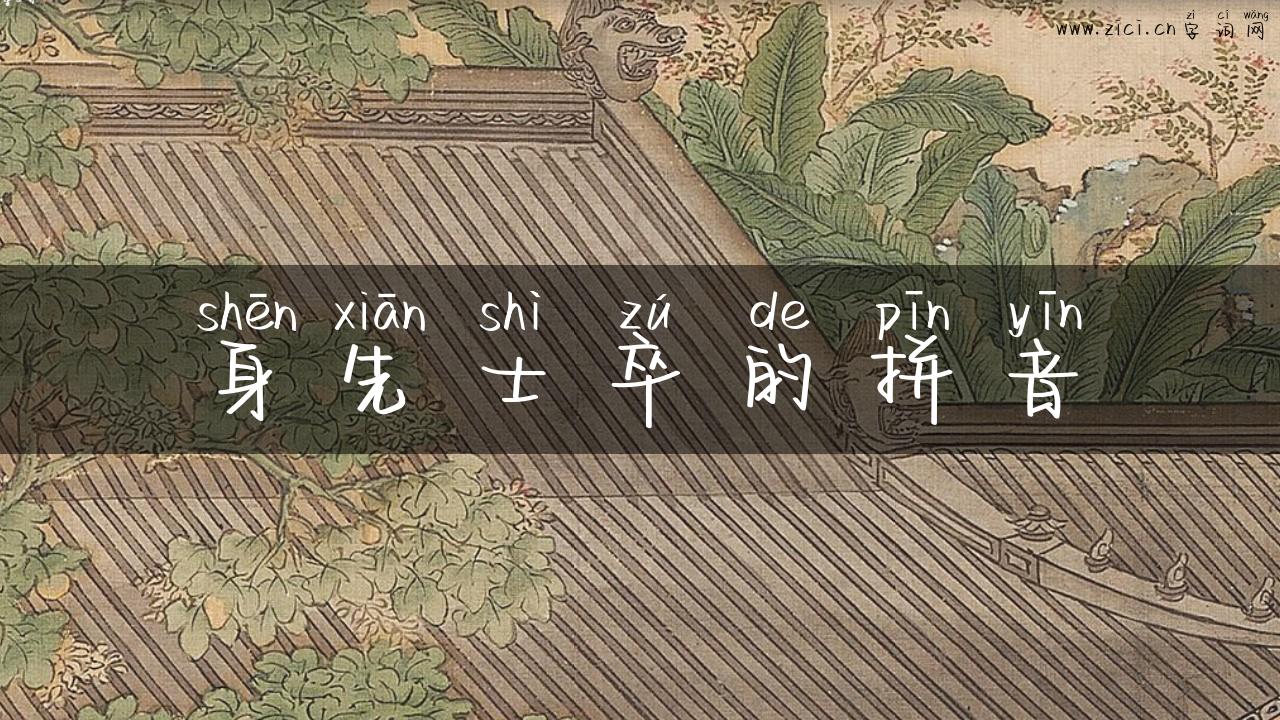 zì cí wǎng
www.zici.cn 字词网
shēn xiān shì zú de pīn yīn
身先士卒的拼音